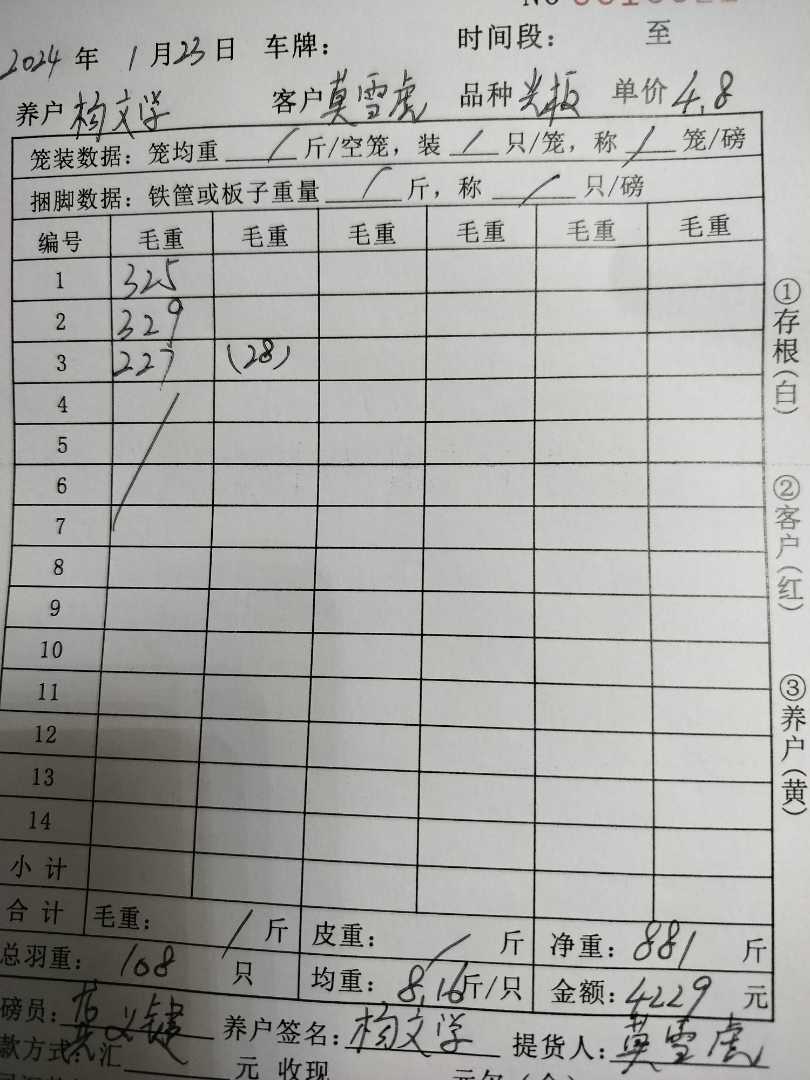 2024 年 1 月 23 日 车牌： 时间段： 至
养户 杨文学 客户 莫雪虎 品种 光板 单价 4.8
笼装数据：笼均重 / 斤/空笼，装 / 只/笼，称 / 笼/磅
捆脚数据：铁筐或板子重量 / 斤，称 / 只/磅
编号 毛重 毛重 毛重 毛重 毛重 毛重
1 325
2 329
3 227 (28)
4
5
6
7
8
9
10
11
12
13
14
小计
合计 毛重： / 斤 皮重： / 斤 净重：881 斤
总羽重：108 只 均重：8.16 斤/只 金额：4229 元
磅员： 养户签名：杨文学 提货人：莫雪虎
款方式：汇 元 收现
①存根(白)
②客户(红)
③养户(黄)